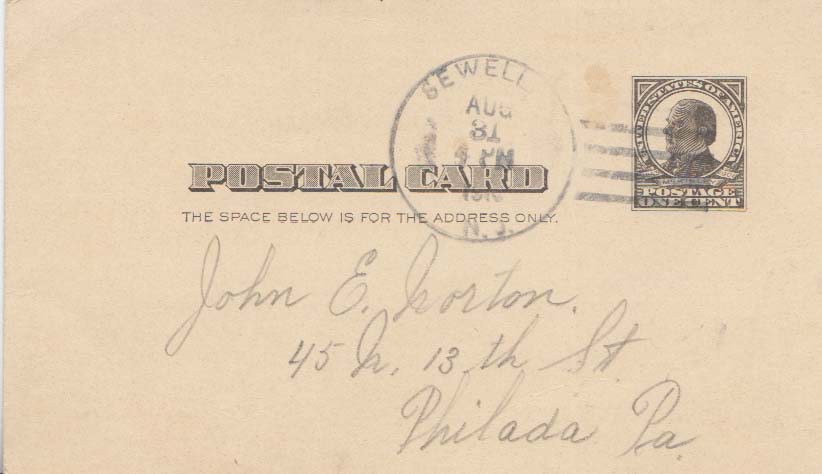 SEWELL
AUG
31
PM
N. J.
UNITED STATES OF AMERICA
POSTAGE
ONE CENT
POSTAL CARD
THE SPACE BELOW IS FOR THE ADDRESS ONLY.
John E. Norton.
45 N. 13th St
Philada Pa